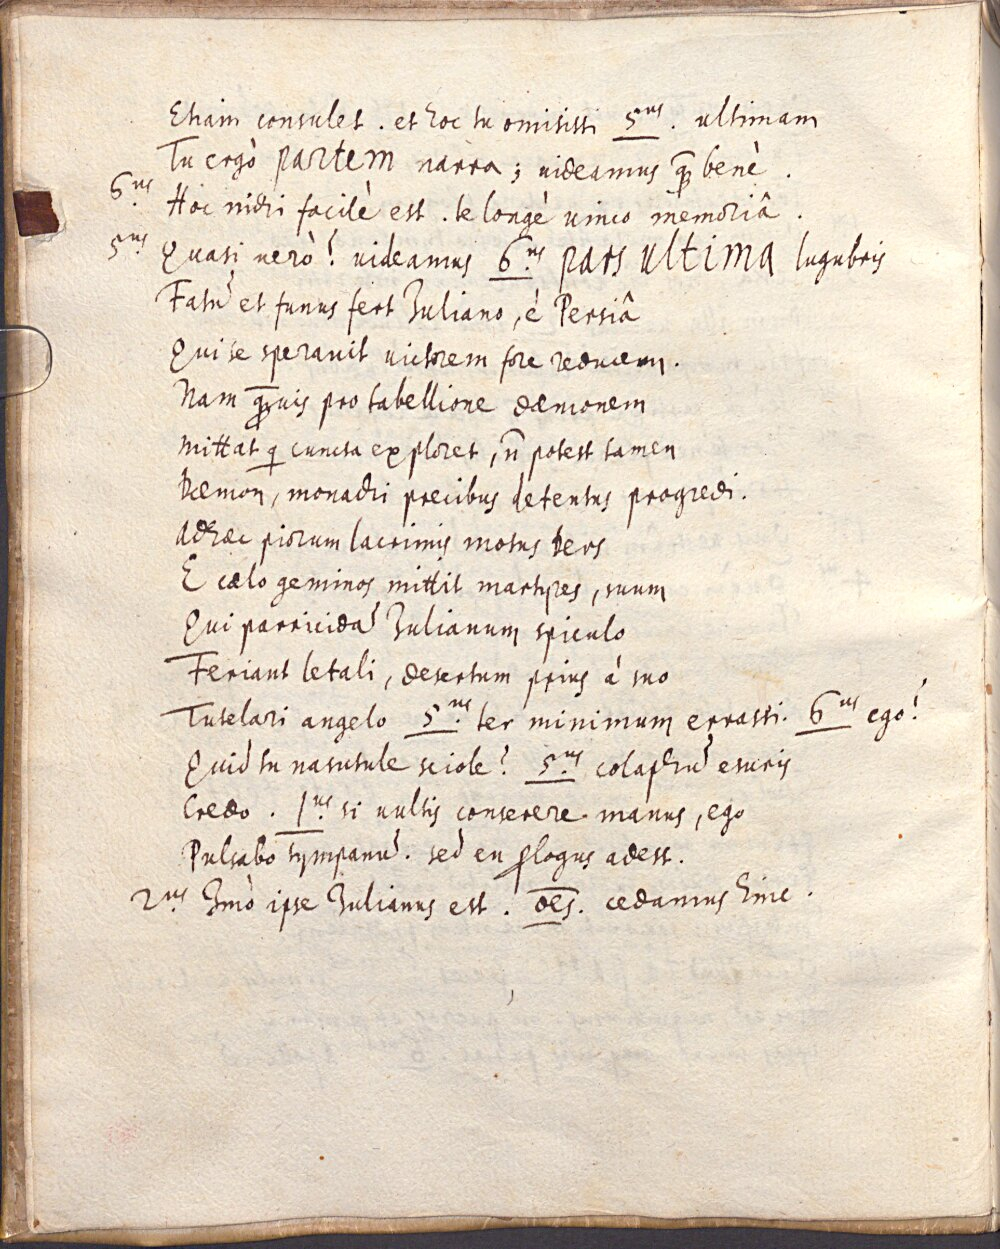 Etiam consulet . et hoc tu omisisti 5.us . ultimam
Tu ergò partem narra ; uideamus qm̄ benè .
6.us Hoc mihi facilè est . te longè uinco memoriâ .
5.us Quasi uerò? uideamus 6.us pars ultima lugubris
Fatū et funus fert Juliano, é Persiâ
Qui se sperauit uictorem fore reducem.
Nam qm̄uis pro tabellione dæmonem
mittat q̄ cuncta exploret, ñ potest tamen
Dæmon, monachi precibus detentus progredi.
Adhæc piorum lacrimis motus Deus
E cælo geminos mittit martyres, suum
Qui parricidā Julianum spiculo
Feriant letali, desertum prius á suo
Tutelari angelo 5.us ter minimum errasti. 6.us ego?
Quid tu nasutule sciole? 5.us colaphū esuris
Credo . 1.us si uultis conserere manus, ego
Pulsabo tympanū. sed en p̄logus adest.
2.us Imò ipse Julianus est . oēs. cedamus hinc .